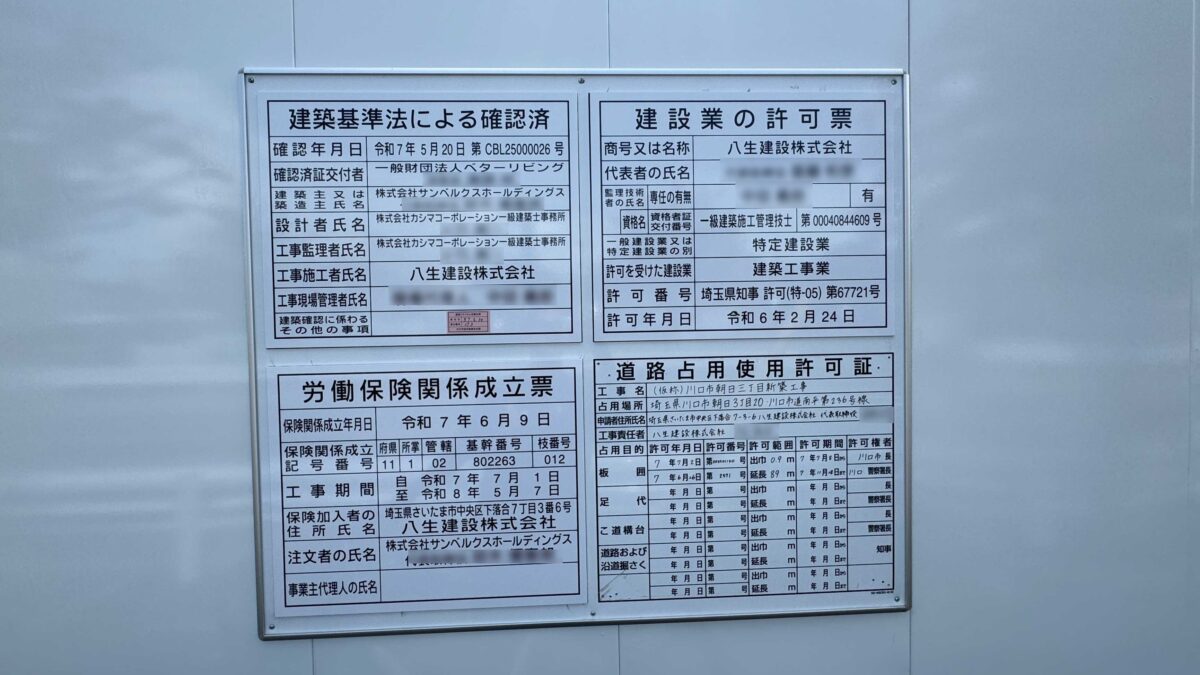 建築基準法による確認済
確認年月日 令和7年5月20日 第CBL25000026号
確認済証交付者 一般財団法人ベターリビング
建築主又は築造主氏名 株式会社サンベルクスホールディングス
設計者氏名 株式会社カシマコーポレーション一級建築士事務所
工事監理者氏名 株式会社カシマコーポレーション一級建築士事務所
工事施工者氏名 八生建設株式会社
工事現場管理者氏名
建築確認に係わるその他の事項
建設業の許可票
商号又は名称 八生建設株式会社
代表者の氏名
監理技術者の氏名 専任の有無 有
資格名 資格者証交付番号 一級建築施工管理技士 第00040844609号
一般建設業又は特定建設業の別 特定建設業
許可を受けた建設業 建築工事業
許可番号 埼玉県知事 許可(特-05) 第67721号
許可年月日 令和6年2月24日
労働保険関係成立票
保険関係成立年月日 令和7年6月9日
保険関係成立記号番号 府県 所掌 管轄 基幹番号 枝番号
11 1 02 802263 012
工事期間 自 令和7年7月1日
至 令和8年5月7日
保険加入者の住所氏名 埼玉県さいたま市中央区下落合7丁目3番6号
八生建設株式会社
注文者の氏名 株式会社サンベルクスホールディングス
事業主代理人の氏名
道路占用使用許可証
工事名 (仮称)川口市朝日三丁目新築工事
占用場所 埼玉県川口市朝日3丁目20 川口市道南平第236号線
申請者住所氏名 埼玉県さいたま市中央区下落合7-3-6 八生建設株式会社 代表取締役
工事責任者 八生建設株式会社
占用目的 許可年月日 許可番号 許可範囲 許可期間 許可権者
板囲 7年7月2日 第 号 出巾0.9m 7年7月8日から 川口市長
7年6月 日 第 号 延長89m 7年11月 日まで 川口警察署長
足代 年月日 第 号 出巾 m 年月日から 長
年月日 第 号 延長 m 年月日まで 警察署長
こ道構台 年月日 第 号 出巾 m 年月日から 長
年月日 第 号 延長 m 年月日まで 警察署長
道路および沿道掘さく 年月日 第 号 出巾 m 年月日から 知事
年月日 第 号 延長 m 年月日まで
年月日 第 号 出巾 m 年月日から
年月日 第 号 延長 m 年月日まで